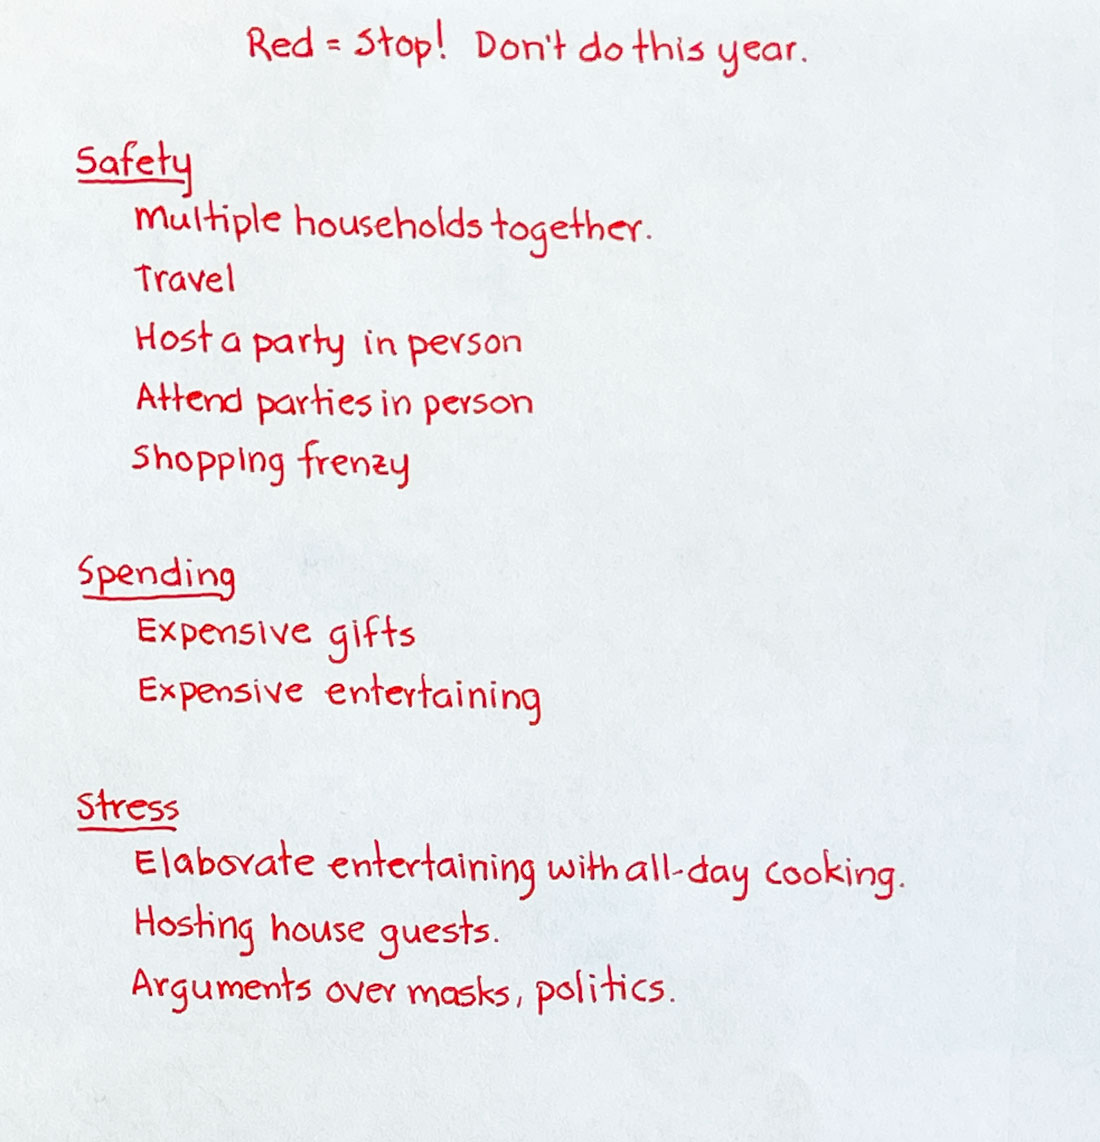 Red = Stop! Don't do this year.
Safety
Multiple households together.
Travel
Host a party in person
Attend parties in person
Shopping frenzy
Spending
Expensive gifts
Expensive entertaining
Stress
Elaborate entertaining with all-day cooking.
Hosting house guests.
Arguments over masks, politics.